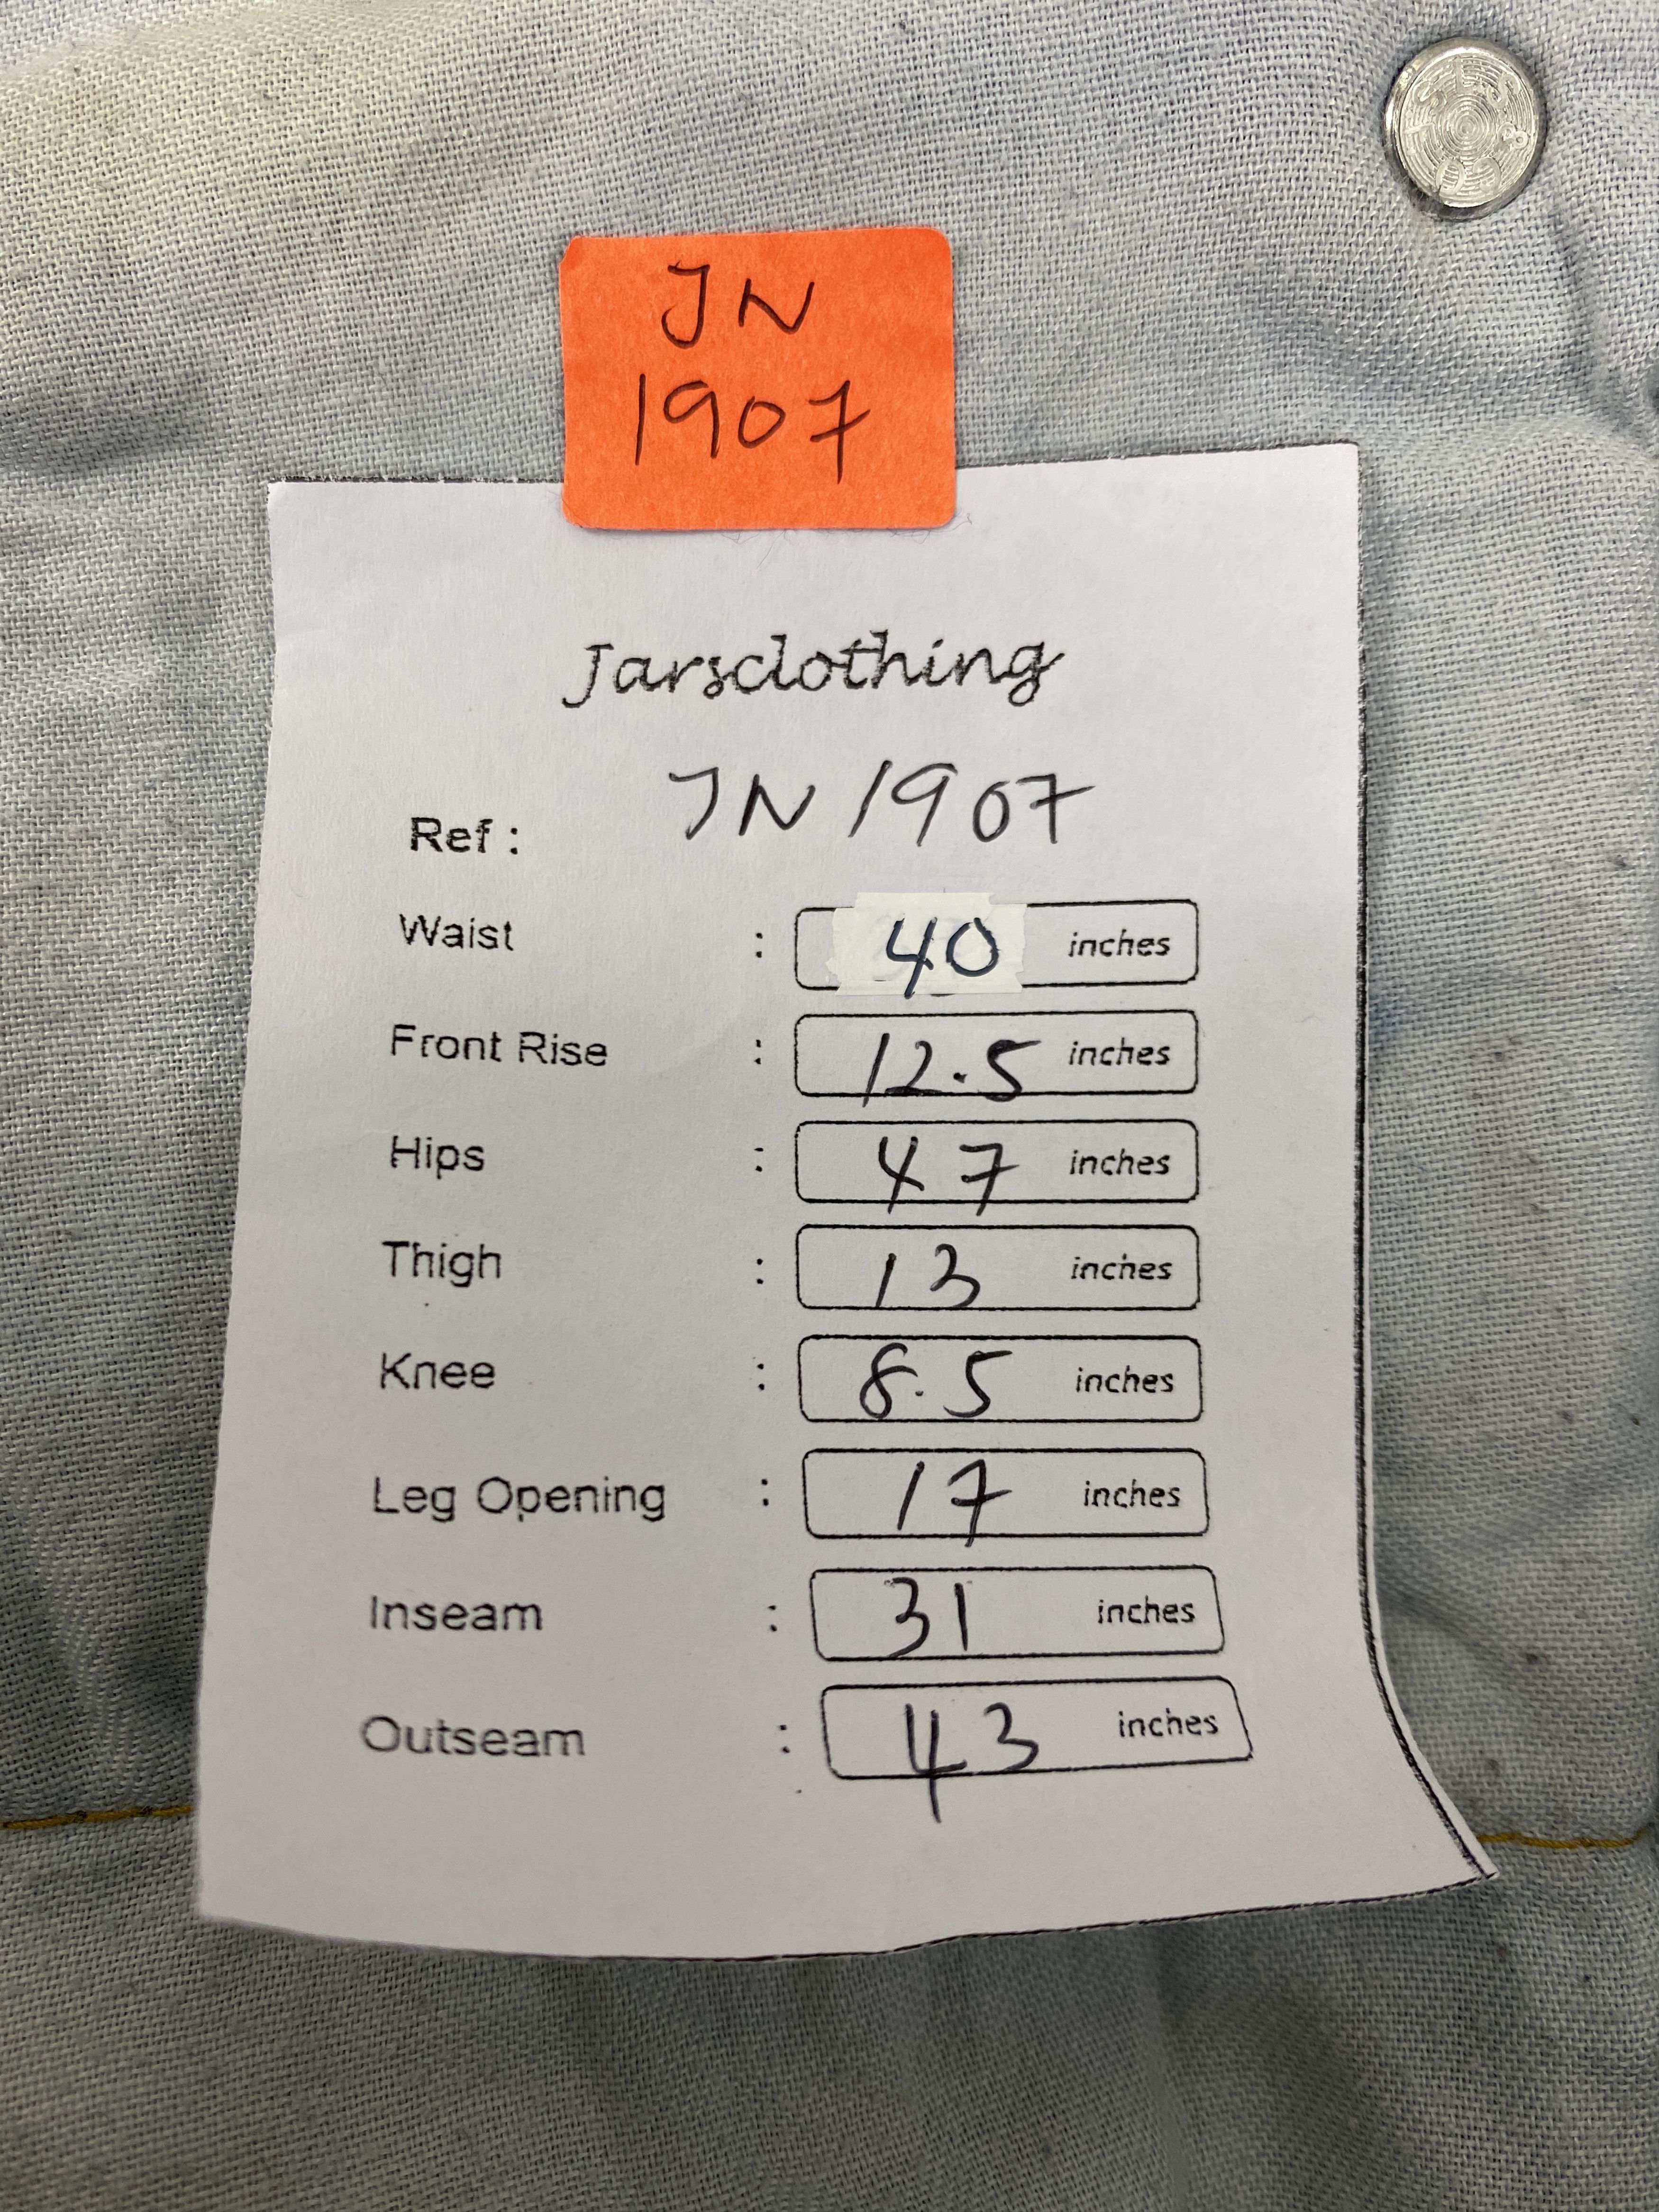 JN
1907
Jarsclothing
Ref : JN 1907
Waist : 40 inches
Front Rise : 12.5 inches
Hips : 47 inches
Thigh : 13 inches
Knee : 8.5 inches
Leg Opening : 17 inches
Inseam : 31 inches
Outseam : 43 inches